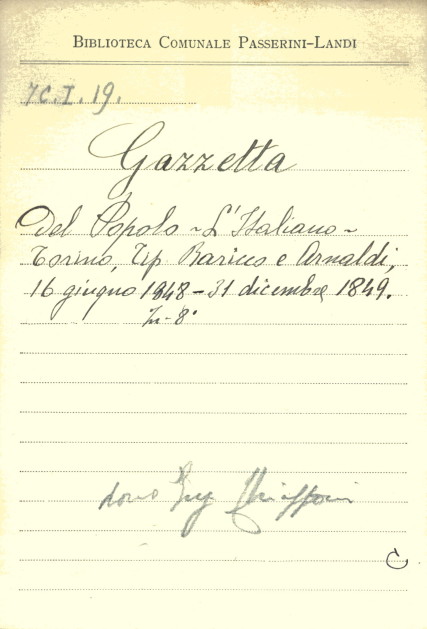 BIBLIOTECA COMUNALE PASSERINI-LANDI
7C.I.19.
Gazzetta
Del Popolo - L'Italiano -
Torino, Tip Baricco e Arnaldi,
16 giugno 1848 - 31 dicembre 1849.
In-8°
dono Ing
C